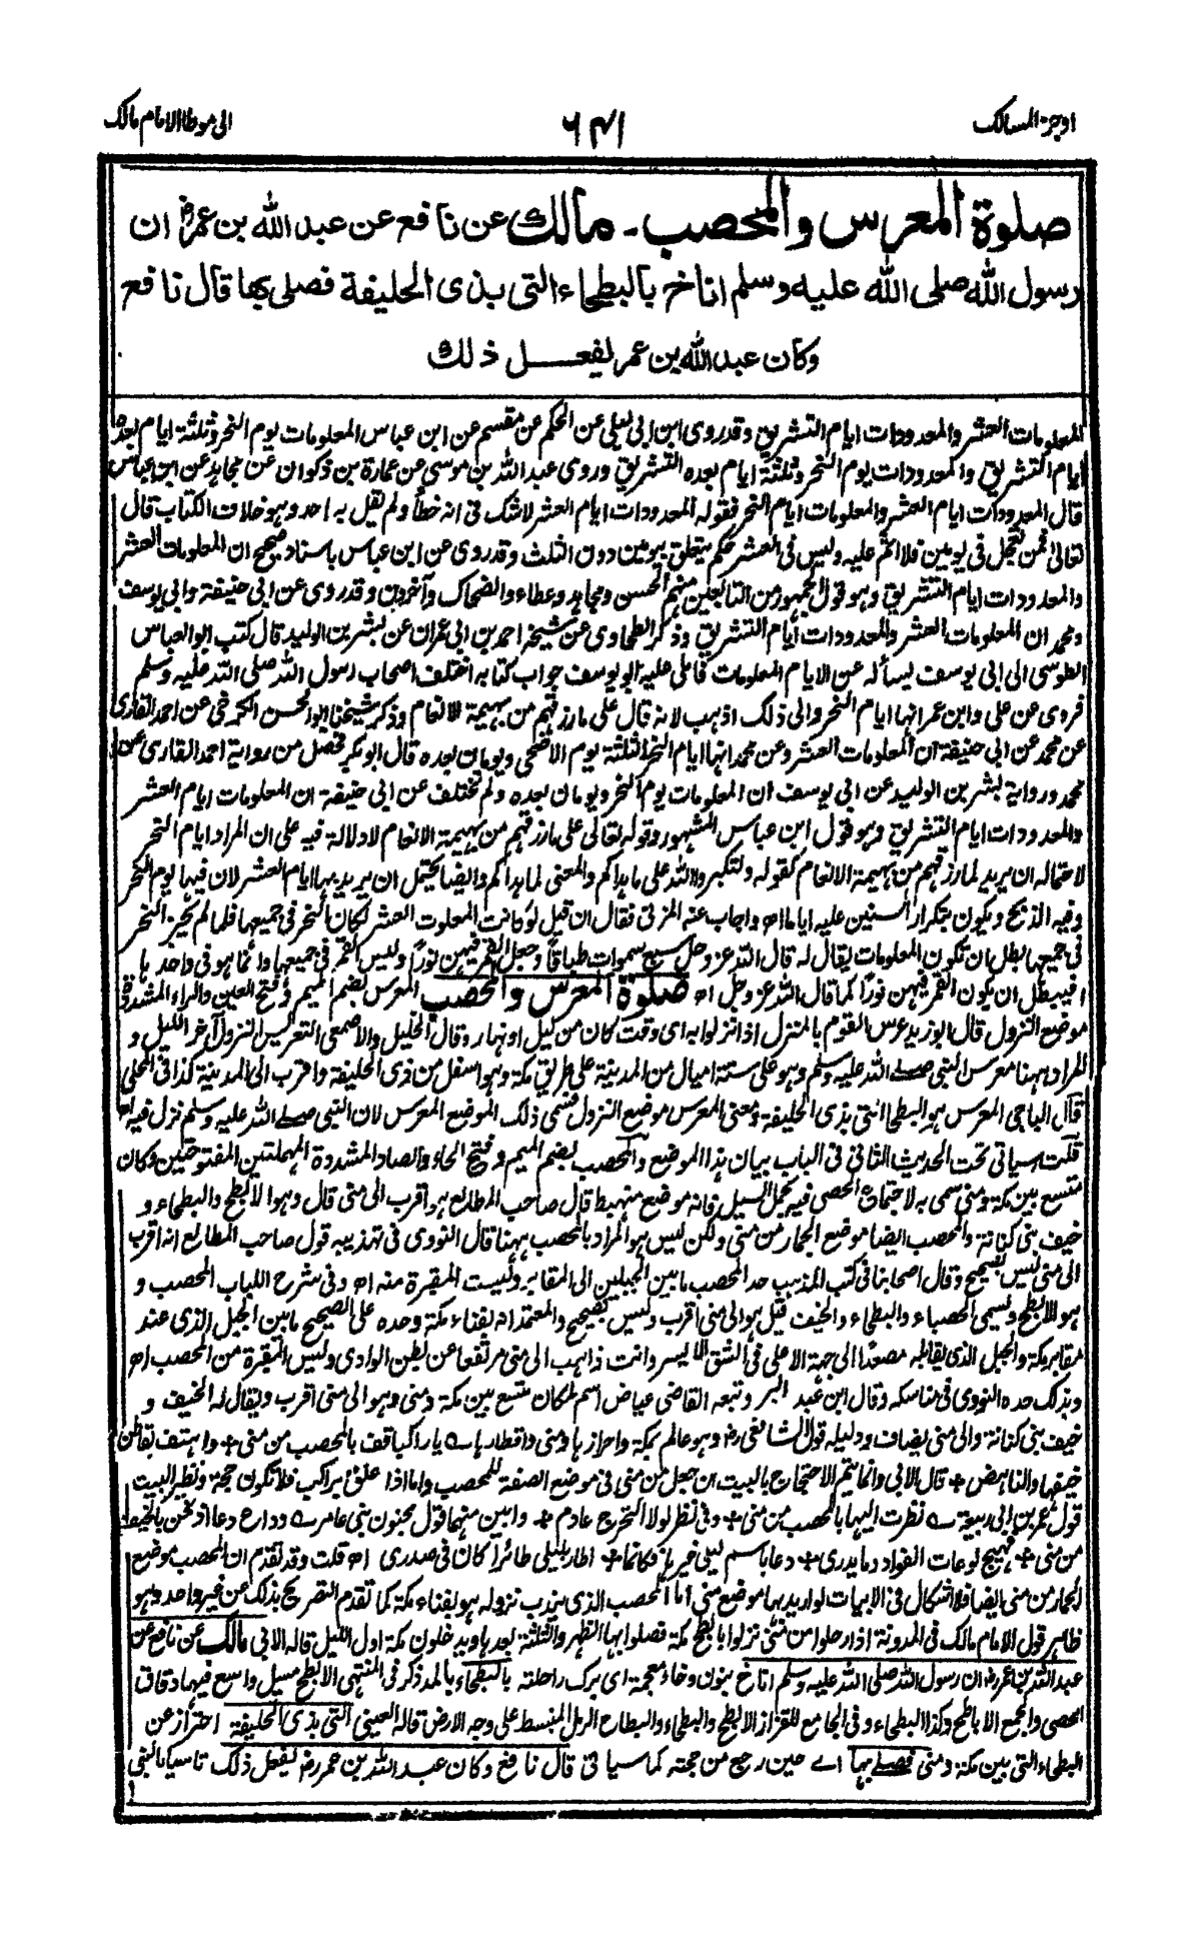 اوجز المسالك
٦٤١
الى موطا الامام مالك
صلوة المعرس والمحصب ـ مالك عن نافع عن عبد الله بن عمر ان
رسول الله صلى الله عليه وسلم اناخ بالبطحاء التى بذى الحليفة فصلى بها قال نافع
وكان عبد الله بن عمر يفعل ذلك
المعلومات العشر والمعدودات ايام التشريق وقد روى ابن ابى ليلى عن الحكم عن مقسم عن ابن عباس المعلومات يوم النحر وثلثة ايام بعده
ايام التشريق والمعدودات يوم النحر وثلثة ايام بعده التشريق وروى عبد الله بن موسى عن عمارة بن ذكوان عن مجاهد عن ابن عباس
قال المعدودات ايام العشر والمعلومات ايام النحر فقوله المعدودات ايام العشر لاشك فى انه خطأ ولم يقل به احد وهو خلاف الكتاب قال
تعالى فمن تعجل فى يومين فلا اثم عليه وليس فى العشر حكم يتعلق بيومين دون الثلث وقد روى عن ابن عباس باسناد صحيح ان المعلومات العشر
والمعدودات ايام التشريق وهو قول الجمهور من التابعين منهم الحسن ومجاهد وعطاء والضحاك وآخرون وقد روى عن ابى حنيفة وابى يوسف
ومحمد ان المعلومات العشر والمعدودات أيام التشريق وذكر الطحاوى عن شيخه احمد بن ابى عمران عن بشر بن الوليد قال كتب ابو العباس
الطوسى الى ابى يوسف يسأله عن الايام المعلومات فاملى عليه ابو يوسف جواب كتابه اختلف اصحاب رسول الله صلى الله عليه وسلم
فروى عن على وابن عمر انها ايام النحر والى ذلك اذهب لانه قال على ما رزقهم من بهيمة الانعام وذكر شيخنا ابو الحسن الكرخى عن احمد القارى
عن محمد عن ابى حنيفة ان المعلومات العشر وعن محمد انها ايام النحر الثلثة يوم الاضحى ويومان بعده قال ابو بكر فحصل من رواية احمد القارى عن
محمد ورواية بشر بن الوليد عن ابى يوسف ان المعلومات يوم النحر ويومان بعده ولم تختلف عن ابى حنيفة ان المعلومات ايام العشر
والمعدودات ايام التشريق وهو قول ابن عباس المشهور وقوله تعالى على ما رزقهم من بهيمة الانعام لا دلالة فيه على ان المراد ايام النحر
لاحتماله ان يريد لما رزقهم من بهيمة الانعام كقوله ولتكبروا الله على ما هداكم والمعنى لما هداكم وايضا يحتمل ان يريد بها ايام العشر لان فيها يوم النحر
وفيه الذبح ويكون بتكرار السنين عليه اياما اه واجاب عنه المزنى فقال ان قيل لو كانت المعلومات العشر لكان النحر فى جميعها فلما لم يجز النحر
فى جميعها بطل ان تكون المعلومات يقال له قال الله عز وجل سبع سموات طباقا وجعل القمر فيهن نورا وليس القمر فى جميعها وانما هو فى واحد با
افيبطل ان يكون القمر فيهن نورًا كما قال الله عز وجل اه صلوة المعرس والمحصب المعرس بضم الميم وفتح العين والراء المشددة
موضع النزول قال ابو زيد عرس القوم بالمنزل اذا نزلوا به اى وقت كان من ليل او نهار وقال الخليل والاصمعى التعريس النزول آخر الليل و
المراد ههنا معرس النبى صلى الله عليه وسلم وهو على ستة اميال من المدينة على طريق مكة وهو اسفل من ذى الحليفة واقرب الى المدينة كذا فى المحلى
قال الباجى المعرس هو البطحا التى بذى الحليفة ومعنى المعرس موضع النزول فسمى ذلك الموضع المعرس لان النبى صلى الله عليه وسلم نزل فيه اه
قلت سياتى تحت الحديث الثانى فى الباب بيان هذا الموضع والمحصب بضم الميم وفتح الحاء والصاد المشددة المهملتين المفتوحتين مكان
متسع بين مكة ومنى سمى به لاجتماع الحصى فيه بحمل السيل فانه موضع منهبط قال صاحب المطالع هو اقرب الى منى قال وهو الابطح والبطحاء و
خيف بنى كنانة والمحصب ايضا موضع الجمار من منى ولكن ليس هو المراد بالمحصب ههنا قال النووى فى تهذيبه قول صاحب المطالع انه اقرب
الى منى ليس بصحيح وقال اصحابنا فى كتب المذهب حد المحصب ما بين الجبلين الى المقابر وليست المقبرة منه اه وفى شرح اللباب المحصب و
هو الابطح ويسمى الحصباء والبطحاء والخيف قيل هو الى منى اقرب وليس بصحيح والمعتمد انه بفناء مكة وحده على الصحيح ما بين الجبل الذى عند
مقابر مكة والجبل الذى يقابله مصعدا الى جهة الاعلى فى الشق الايسر وانت ذاهب الى منى مرتفعا عن بطن الوادى وليس المقبرة من المحصب اه
وبذلك حده النووى فى مناسكه وقال ابن عبد البر وتبعه القاضى عياض اسم لمكان متسع بين مكة ومنى وهو الى منى اقرب ويقال له الخيف و
خيف بنى كنانة والى منى يضاف ودليله قول الشافعى رم وهو عالم بمكة واحوازها ومنى واقطارها ے يا راكبا قف بالمحصب من منى + واهتف بقاطن
خيفها والناهض + قال الابى وانما يتم الاحتجاج بالبيت ان جعل من منى فى موضع الصفة للمحصب واما اذا علق براكب فلا تكون حجة ونظير البيت
قول عمر بن ابى ربيعة ے نظرت اليها بالمحصب من منى + وفى نظر لولا التحرج عادم + وابين منهما قول مجنون بنى عامر ے وداع دعا اذ نحن بالخيف
من منى + فهيج لوعات الفواد وما يدرى + دعا باسم ليلى غيرها فكانما + اطار بليلى طائرا كان فى صدرى اه قلت وقد تقدم ان المحصب موضع
الجمار من منى ايضا فلا اشكال فى الابيات لو اريد بها موضع منى اما المحصب الذى يندب نزوله هو بفناء مكة كما تقدم التصريح بذلك عن غير واحد وهو
ظاهر قول الامام مالك فى المدونة اذا رحلوا من منى نزلوا بابطح مكة فصلوا بها الظهر والثلثة بعدها ويدخلون مكة اول الليل قاله الابى مالك عن نافع عن
عبد الله بن عمر رم ان رسول الله صلى الله عليه وسلم اناخ بنون وخاء معجمة اى برك راحلته بالبطحاء بالمد ذكر فى المنتهى الابطح مسيل واسع فيه دقاق
الحصى والجمع الاباطح وكذا البطحاء وفى الجامع للقزاز الابطح والبطحاء والبطاح الرمل المنبسط على وجه الارض قاله العينى التى بذى الحليفة احتراز عن
البطحاء التى بين مكة ومنى فصلى بها اے حين رجع من حجته كما سياتى قال نافع وكان عبد الله بن عمر رم يفعل ذلك تاسيا بالنبى